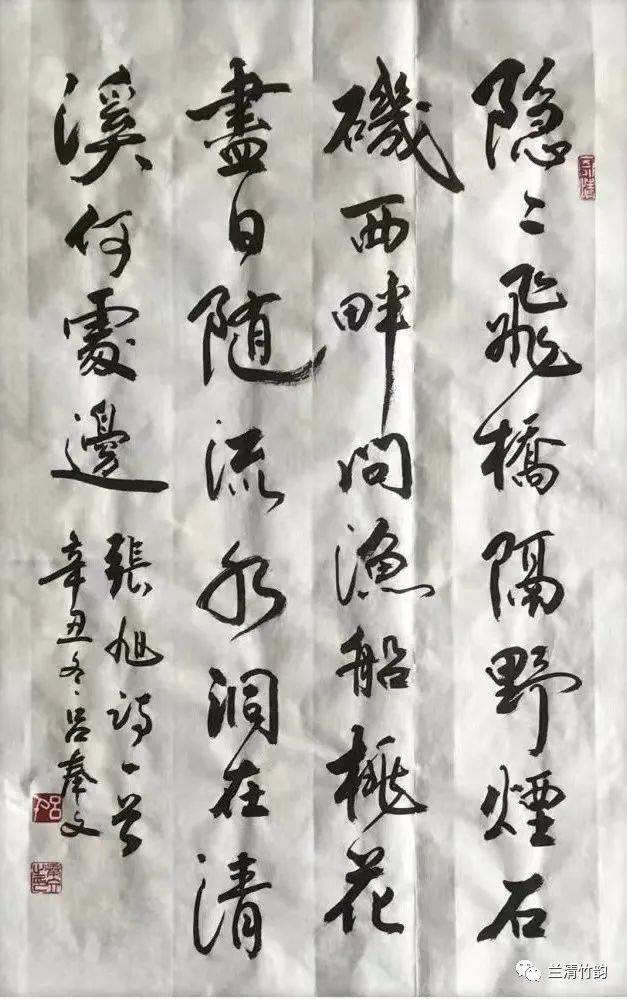 隐〻飛橋隔野煙石
磯西畔问漁船桃花
盡日随流水洞在清
溪何處邊
張旭诗一首
辛丑冬吕奉文
兰清竹韵